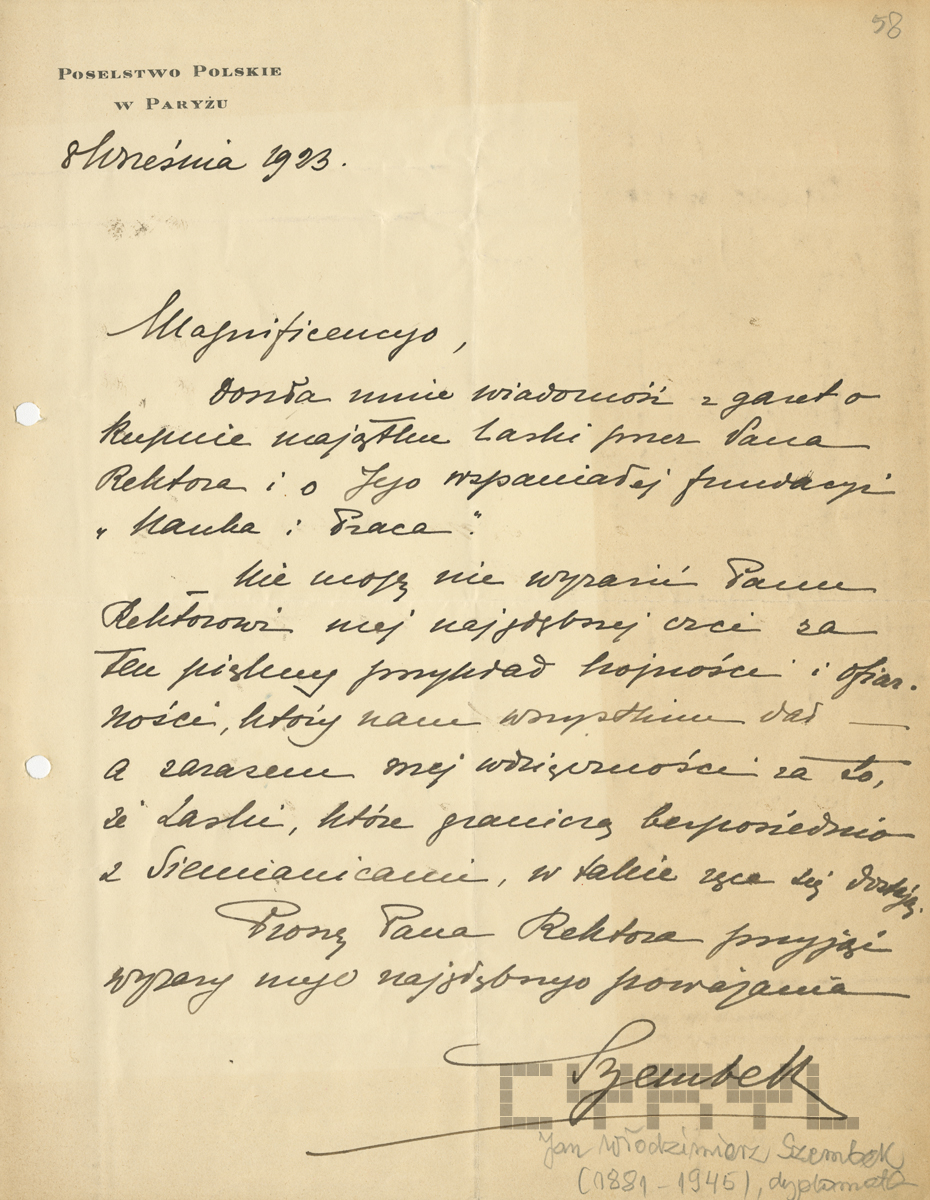 58
POSELSTWO POLSKIE
W PARYŻU
8 Września 1923.
Magnificencyo,
Doszła mnie wiadomość z gazet o
kupnie majątku Laski przez Pana
Rektora i o Jego wspaniałej fundacyi
„Nauka i Praca".
Nie mogę nie wyrazić Panu
Rektorowi mej najgłębszej czci za
ten piękny przykład hojności i ofiar-
ności, który nam wszystkim dał —
a zarazem mej wdzięczności za to,
że Laski, które graniczą bezpośrednio
z Siemianicami, w takie ręce się dostają.
Proszę Pana Rektora przyjąć
wyrazy mego najgłębszego poważania
Szembek
CYRYL
Jan Włodzimierz Szembek
(1881-1945), dyplomata